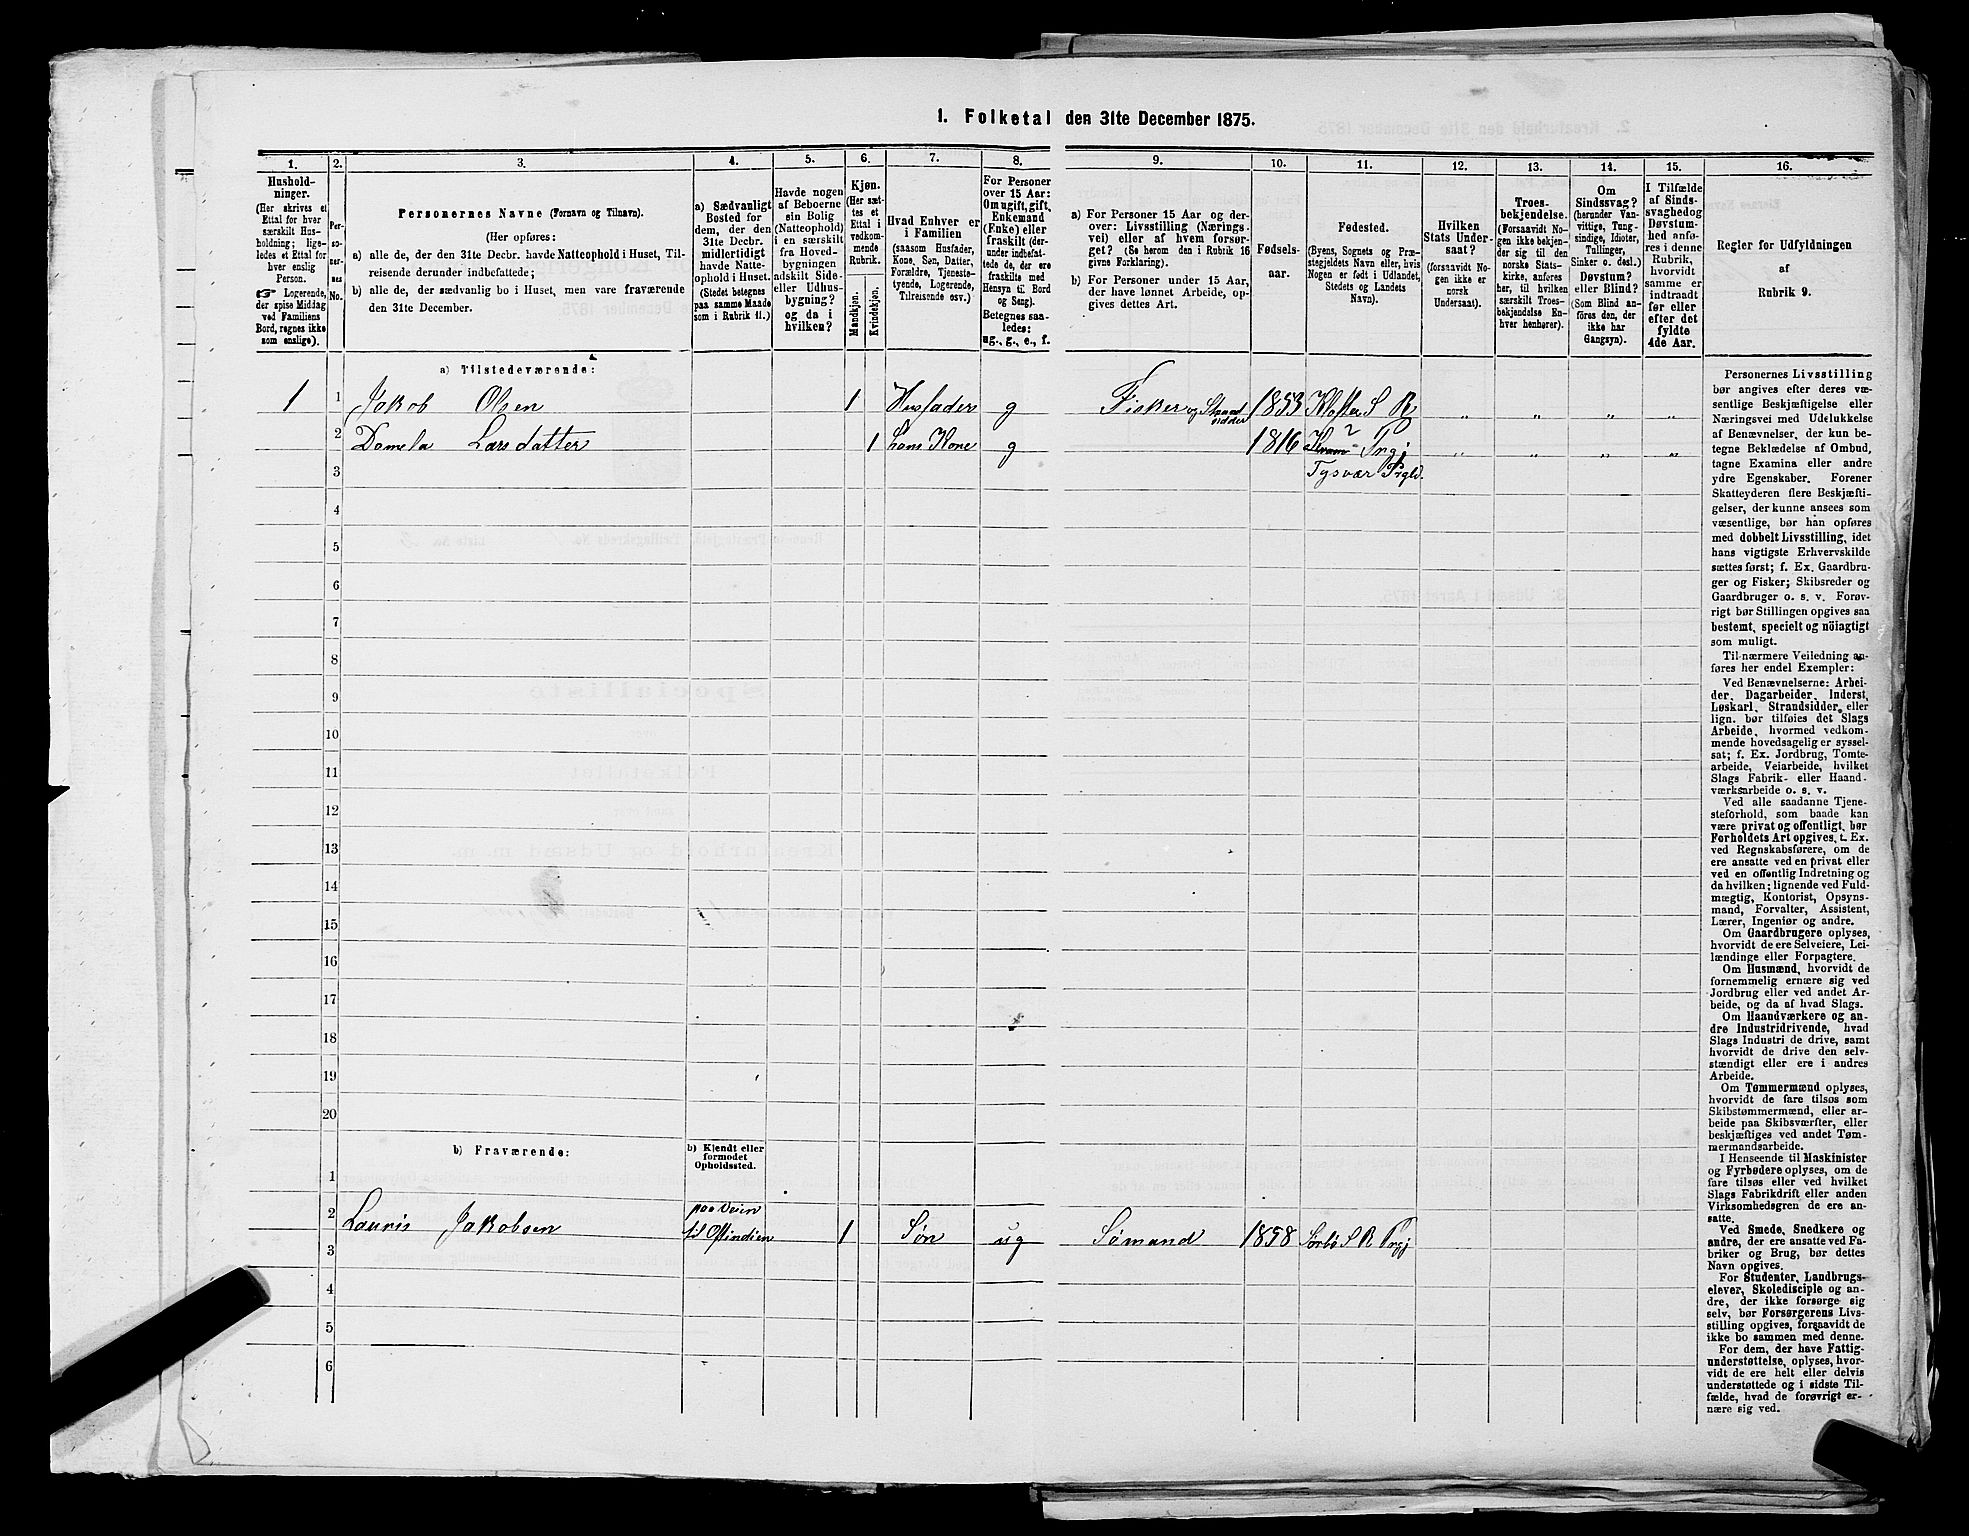 1. Folketal den 31te December 1875.
1. 2. 3. 4. 5. 6. 7. 8. 9. 10. 11. 12. 13. 14. 15. 16.
Hushold-
ninger.
(Her skrives et
Ettal for hver
særskilt Hus-
holdning; lige-
ledes et Ettal for
hver enslig
Person.
☞ Logerende,
der spise Middag
ved Familiens
Bord, regnes ikke
som enslige).
Per-
so-
ner-
nes
No.
Personernes Navne (Fornavn og Tilnavn).
(Her opføres:
a) alle de, der den 31te Decbr. havde Natteophold i Huset, Til-
reisende derunder indbefattede;
b) alle de, der sædvanlig bo i Huset, men vare fraværende
den 31te December.
a) Sædvanligt
Bosted for
dem, der den
31te Decbr.
midlertidigt
havde Natte-
ophold i Huset.
(Stedet betegnes
paa samme Maade
som i Rubrik 11.)
Havde nogen
af Beboerne
sin Bolig
(Natteophold)
i en særskilt
fra Hoved-
bygningen
adskilt Side-
eller Udhus-
bygning?
og da i
hvilken?
Kjøn.
(Her sæt-
tes et
Ettal i
vedkom-
mende
Rubrik.
Mandkjøn.
Kvindekjøn.
Hvad Enhver er
i Familien
(saasom Husfader,
Kone, Søn, Datter,
Forældre, Tjeneste-
tyende, Logerende,
Tilreisende osv.)
For Personer
over 15 Aar:
Om ugift, gift,
Enkemand
(Enke) eller
fraskilt (der-
under indbefat-
tede de, der ere
fraskilte med
Hensyn til Bord
og Seng).
Betegnes saa-
ledes:
ug., g., e., f.
a) For Personer 15 Aar og der-
over: Livsstilling (Nærings-
vei) eller af hvem forsør-
get? (Se herom den i Rubrik 16
givne Forklaring).
b) For Personer under 15 Aar,
der have lønnet Arbeide, op-
gives dettes Art.
Fødsels-
aar.
Fødested.
(Byens, Sognets og Præ-
stegjeldets Navn eller, hvis
Nogen er født i Udlandet,
Stedets og Landets
Navn).
Hvilken
Stats Under-
saat?
(forsaavidt No-
gen ikke er
norsk
Undersaat).
Troes-
bekjendelse.
(Forsaavidt No-
gen ikke bekjen-
der sig til den
norske Stats-
kirke, anføres
her, til hvilken
særskilt Troes-
bekjendelse En-
hver henhører).
Om
Sindssvag?
(herunder Van-
vittige, Tung-
sindige, Idioter,
Tullinger,
Sinker o. desl.)
Døvstum?
eller Blind?
(Som Blind an-
føres den, der
ikke har
Gangsyn).
I Tilfælde
af Sinds-
svaghed og
Døvstum-
hed anfø-
res i denne
Rubrik,
hvorvidt
samme er
indtraadt
før eller
efter det
fyldte
4de Aar.
Regler for Udfyldningen
af
Rubrik 9.
a) Tilstedeværende:
1 1 Jakob Olsen 1 Husfader g Fisker og Strand 1853 Kloster S R „ „ „ „
sidder
2 Domela Larsdatter 1 hans Kone g 1816 „ „ „ „
3 Tysvær Prgld.
4
5
6
7
8
9
10
11
12
13
14
15
16
17
18
19
20
b) Fraværende:
b) Kjendt eller
formodet
Opholdssted.
1
2 Lauris Jakobsen paa Veien
til Ostindien 1 Søn ug Sømand 1858 S R Prgj
3
4
5
6
Personernes Livsstilling
bør angives efter deres væ-
sentlige Beskjæftigelse eller
Næringsvei med Udelukkelse
af Benævnelser, der kun be-
tegne Beklædelse af Ombud,
tagne Examina eller andre
ydre Egenskaber. Forener
Skatteyderen flere Beskjæfti-
gelser, der kunne ansees som
væsentlige, bør han opføres
med dobbelt Livsstilling, idet
hans vigtigste Erhvervskilde
sættes først; f. Ex. Gaardbru-
ger og Fisker; Skibsreder og
Gaardbruger o. s. v. Forøv-
rigt bør Stillingen opgives saa
bestemt, specielt og nöiagtigt
som muligt.
Til nærmere Veiledning an-
føres her endel Exempler:
Ved Benævnelserne: Arbei-
der, Dagarbeider, Inderst,
Løskarl, Strandsidder eller
lign. bør tilføies det Slags
Arbeide, hvormed vedkom-
mende hovedsagelig er syssel-
sat; f. Ex. Jordbrug, Tomte-
arbeide, Veiarbeide, hvilket
Slags Fabrik- eller Haand-
værksarbeide o. s. v.
Ved alle saadanne Tjene-
steforhold, som baade kan
være privat og offentligt, bør
Forholdets Art opgives, t. Ex.
ved Regnskabsførere, om de
ere ansatte ved en privat eller
ved en offentlig Indretning og
da hvilken; lignende ved Fuld-
mægtig, Kontorist, Opsyns-
mand, Forvalter, Assistent,
Lærer, Ingeniør og andre.
Om Gaardbrugere oplyses,
hvorvidt de ere Selveiere, Lei-
lændinge eller Forpagtere.
Om Husmænd, hvorvidt de
fornemmelig ernære sig ved
Jordbrug eller ved andet Ar-
beide, og da af hvad Slags.
Om Haandværkere og an-
dre Industridrivende, hvad
Slags Industri de drive, samt
hvorvidt de drive den selv-
stændigt eller ere i andres
Arbeide.
Om Tømmermænd oplyses,
hvorvidt de fare tilsøs som
Skibstømmermænd, eller ar-
beide paa Skibsværfter, eller
beskjæftiges ved andet Tøm-
mermandsarbeide.
I Henseende til Maskinister
og Fyrbødere oplyses, om de
fare tilsøs eller ved hvilket
Slags Fabrikdrift eller anden
Virksomhedsgren de ere an-
satte.
Ved Smede, Snedkere og
andre, der ere ansatte ved Fa-
briker og Brug, bør dettes
Navn opgives.
For Studenter, Landbrugs-
elever, Skoledisciple og an-
dre, der ikke forsørge sig
selv, bør Forsørgerens Livs-
stilling opgives, forsaavidt de
ikke bo sammen med denne.
For dem, der have Fattig-
understøttelse, oplyses, hvor-
vidt de ere helt eller delvis
understøttede og i sidste Til-
fælde, hvad de forøvrigt er-
nære sig ved.